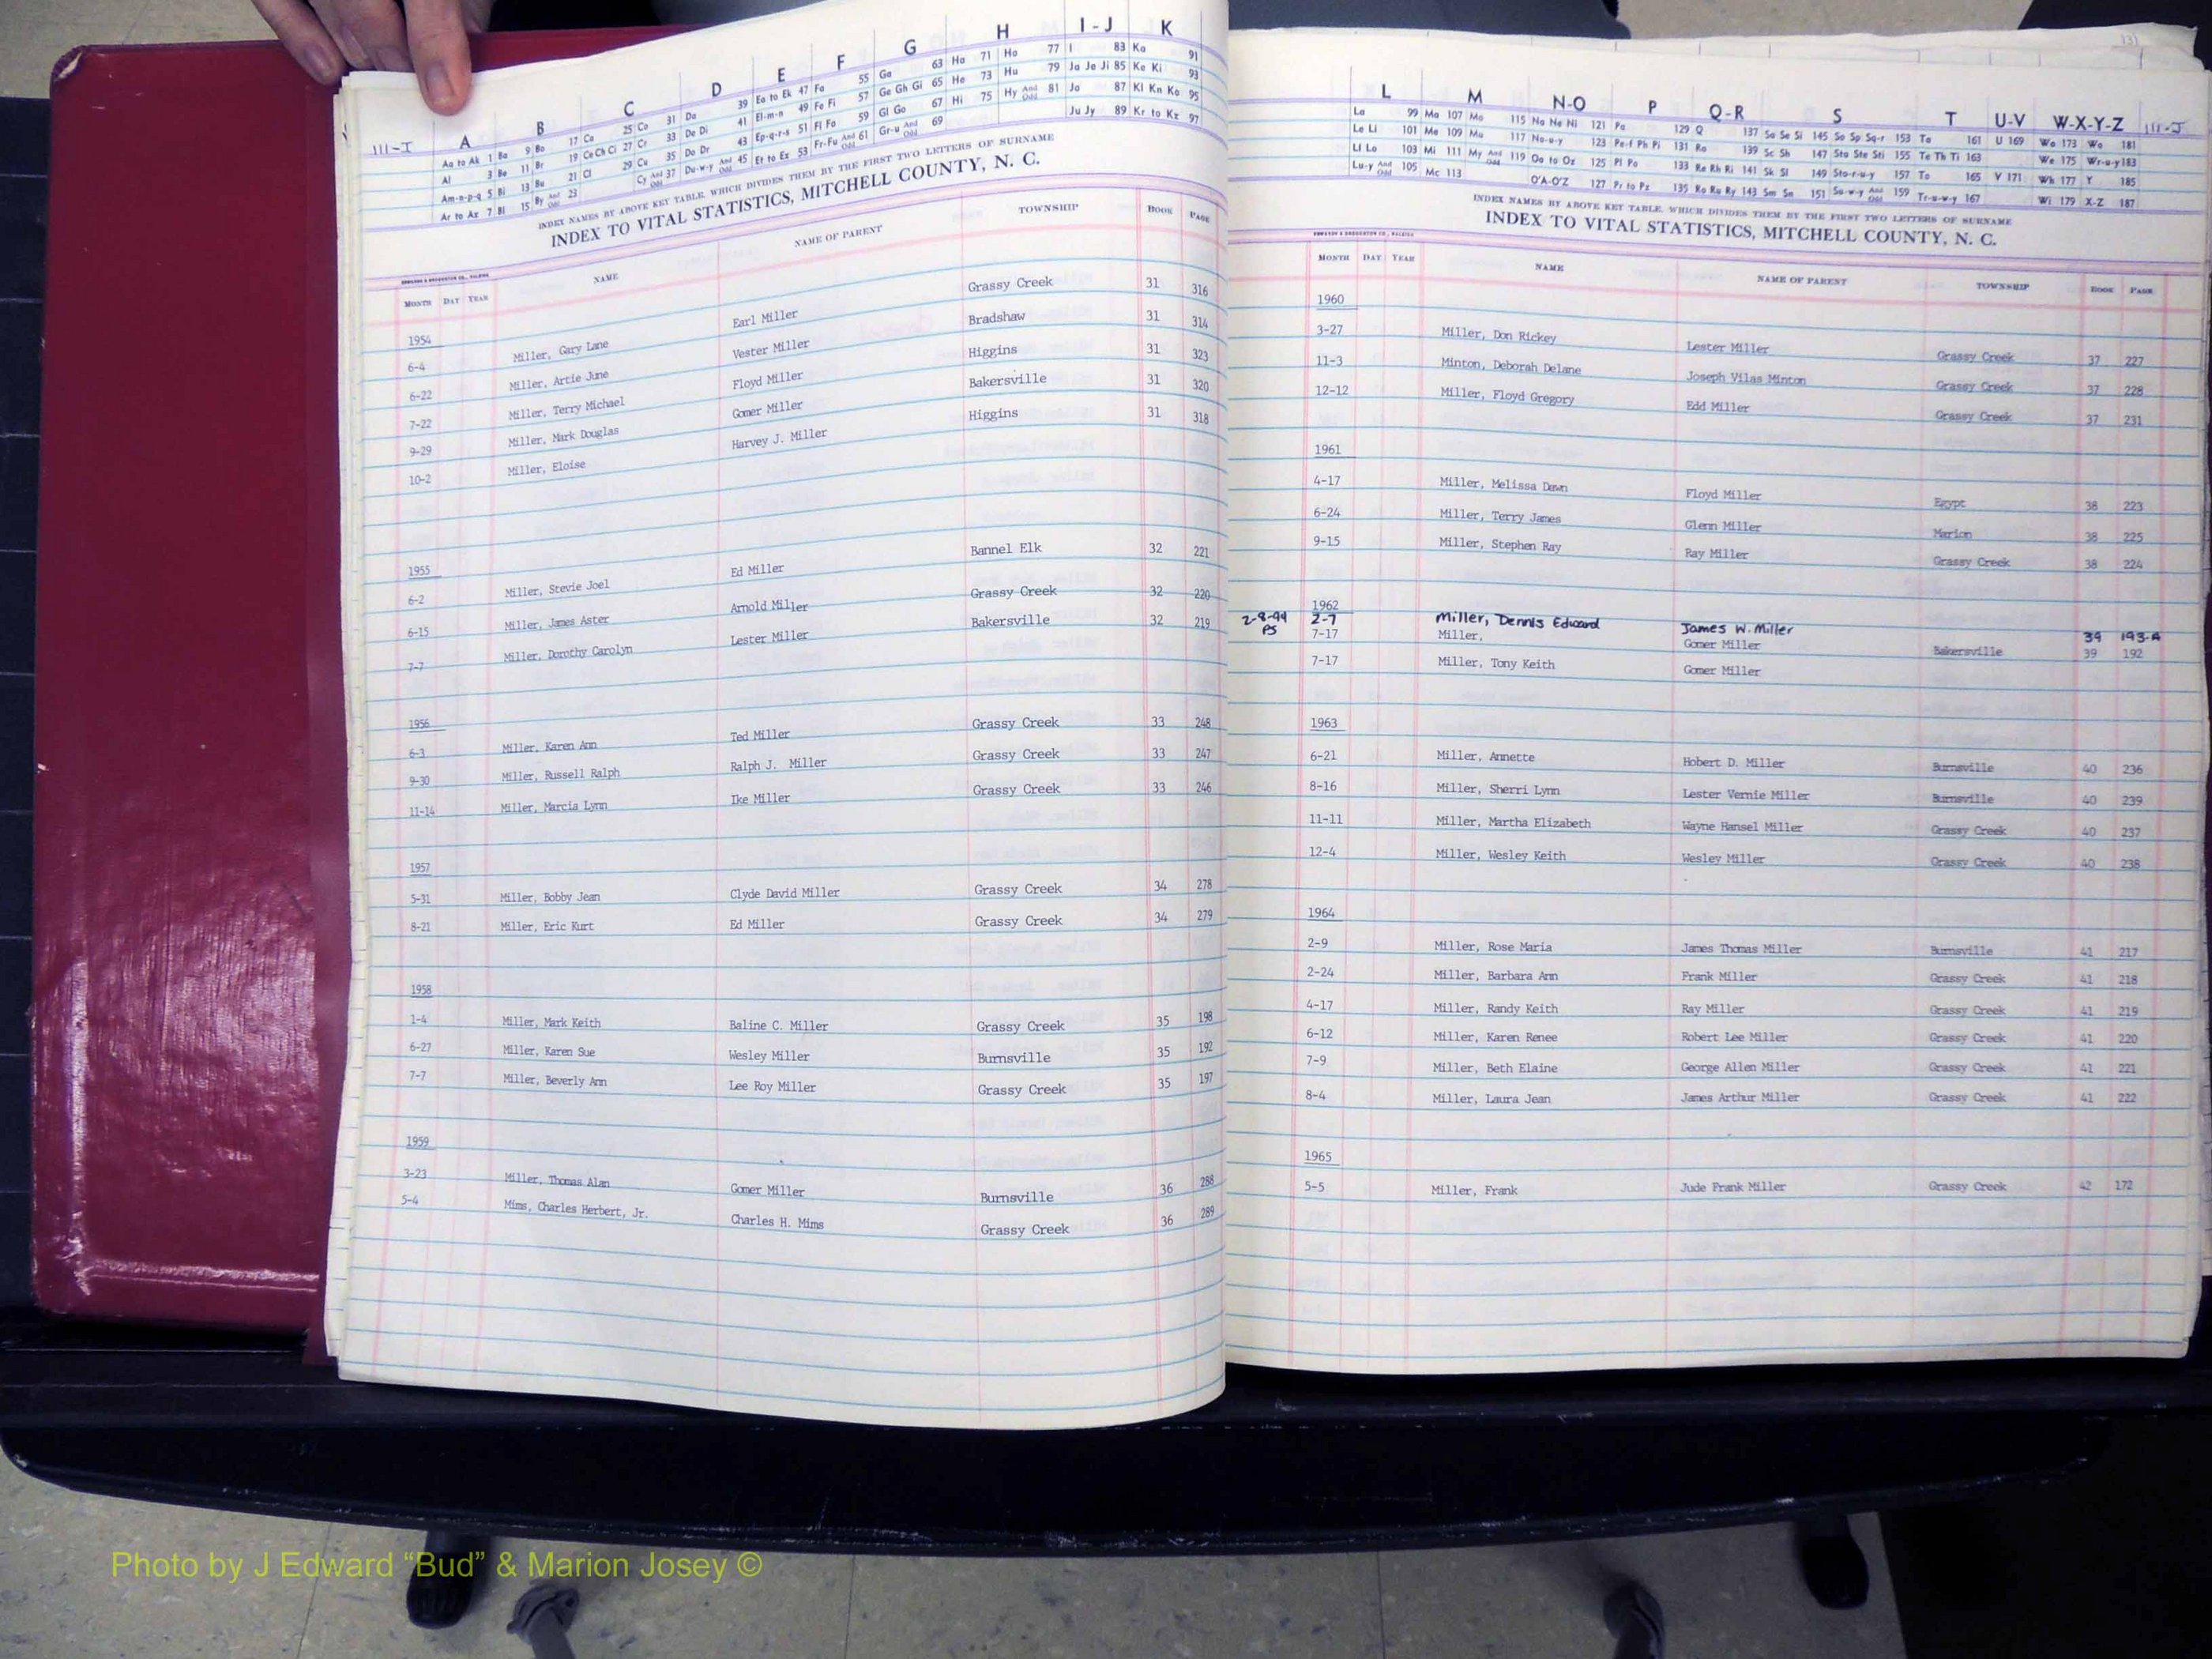 III-I A B C D E F G H I-J K
Aa to Ak 1 Ba 9 Bo 17 Ca 25 Co 31 Da 39 Ea to Ek 47 Fa 55 Ga 63 Ha 71 Ho 77 I 83 Ka 91
Al 3 Be 11 Br 19 Ce Ch Ci 27 Cr 33 De Di 41 El-m-n 49 Fe Fi 57 Ge Gh Gi 65 He 73 Hu 79 Ja Je Ji 85 Ke Ki 93
Am-n-p-q 5 Bi 13 Bu 21 Cl 29 Cu 35 Do Dr 43 Ep-q-r-s 51 Fl Fo 59 Gl Go 67 Hi 75 Hy And Odd 81 Jo 87 Kl Kn Ko 95
Ar to Az 7 Bl 15 By And Odd 23 Cy And Odd 37 Du-w-y And Odd 45 Et to Ez 53 Fr-Fu And Odd 61 Gr-u And Odd 69 Ju Jy 89 Kr to Kz 97
INDEX NAMES BY ABOVE KEY TABLE, WHICH DIVIDES THEM BY THE FIRST TWO LETTERS OF SURNAME
INDEX TO VITAL STATISTICS, MITCHELL COUNTY, N. C.
EDWARDS & BROUGHTON CO., RALEIGH
MONTH DAY YEAR NAME NAME OF PARENT TOWNSHIP BOOK PAGE
1954
6-4 Miller, Gary Lane Earl Miller Grassy Creek 31 316
6-22 Miller, Artie June Vester Miller Bradshaw 31 314
7-22 Miller, Terry Michael Floyd Miller Higgins 31 323
9-29 Miller, Mark Douglas Gomer Miller Bakersville 31 320
10-2 Miller, Eloise Harvey J. Miller Higgins 31 318
1955
6-2 Miller, Stevie Joel Ed Miller Bannel Elk 32 221
6-15 Miller, James Aster Arnold Miller Grassy Creek 32 220
7-7 Miller, Dorothy Carolyn Lester Miller Bakersville 32 219
1956
6-3 Miller, Karen Ann Ted Miller Grassy Creek 33 248
9-30 Miller, Russell Ralph Ralph J. Miller Grassy Creek 33 247
11-14 Miller, Marcia Lynn Ike Miller Grassy Creek 33 246
1957
5-31 Miller, Bobby Jean Clyde David Miller Grassy Creek 34 278
8-21 Miller, Eric Kurt Ed Miller Grassy Creek 34 279
1958
1-4 Miller, Mark Keith Baline C. Miller Grassy Creek 35 198
6-27 Miller, Karen Sue Wesley Miller Burnsville 35 192
7-7 Miller, Beverly Ann Lee Roy Miller Grassy Creek 35 197
1959
3-23 Miller, Thomas Alan Gomer Miller Burnsville 36 288
5-4 Mims, Charles Herbert, Jr. Charles H. Mims Grassy Creek 36 289
L M N-O P Q-R S T U-V W-X-Y-Z III-J
La 99 Ma 107 Mo 115 Na Ne Ni 121 Pa 129 Q 137 Sa Se Si 145 So Sp Sq-r 153 Ta 161 U 169 Wa 173 Wo 181
Le Li 101 Me 109 Mu 117 No-u-y 123 Pe-f Ph Pi 131 Ra 139 Sc Sh 147 Sta Ste Sti 155 Te Th Ti 163 We 175 Wr-u-y 183
Ll Lo 103 Mi 111 My And Odd 119 Oa to Oz 125 Pl Po 133 Re Rh Ri 141 Sk Sl 149 Sto-r-u-y 157 To 165 V 171 Wh 177 Y 185
Lu-y And Odd 105 Mc 113 O'A-O'Z 127 Pr to Pz 135 Ro Ru Ry 143 Sm Sn 151 Su-w-y And Odd 159 Tr-u-w-y 167 Wi 179 X-Z 187
INDEX NAMES BY ABOVE KEY TABLE, WHICH DIVIDES THEM BY THE FIRST TWO LETTERS OF SURNAME
INDEX TO VITAL STATISTICS, MITCHELL COUNTY, N. C.
EDWARDS & BROUGHTON CO., RALEIGH
MONTH DAY YEAR NAME NAME OF PARENT TOWNSHIP BOOK PAGE
1960
3-27 Miller, Don Rickey Lester Miller Grassy Creek 37 227
11-3 Minton, Deborah Delane Joseph Vilas Minton Grassy Creek 37 228
12-12 Miller, Floyd Gregory Edd Miller Grassy Creek 37 231
1961
4-17 Miller, Melissa Dawn Floyd Miller Egypt 38 223
6-24 Miller, Terry James Glenn Miller Marion 38 225
9-15 Miller, Stephen Ray Ray Miller Grassy Creek 38 224
1962
2-8-94 PS 2-7 Miller, Dennis Edward James W. Miller 39 193-A
7-17 Miller, Gomer Miller Bakersville 39 192
7-17 Miller, Tony Keith Gomer Miller
1963
6-21 Miller, Annette Hobert D. Miller Burnsville 40 236
8-16 Miller, Sherri Lynn Lester Vernie Miller Burnsville 40 239
11-11 Miller, Martha Elizabeth Wayne Hansel Miller Grassy Creek 40 237
12-4 Miller, Wesley Keith Wesley Miller Grassy Creek 40 238
1964
2-9 Miller, Rose Maria James Thomas Miller Burnsville 41 217
2-24 Miller, Barbara Ann Frank Miller Grassy Creek 41 218
4-17 Miller, Randy Keith Ray Miller Grassy Creek 41 219
6-12 Miller, Karen Renee Robert Lee Miller Grassy Creek 41 220
7-9 Miller, Beth Elaine George Allen Miller Grassy Creek 41 221
8-4 Miller, Laura Jean James Arthur Miller Grassy Creek 41 222
1965
5-5 Miller, Frank Jude Frank Miller Grassy Creek 42 172
Photo by J Edward “Bud” & Marion Josey ©